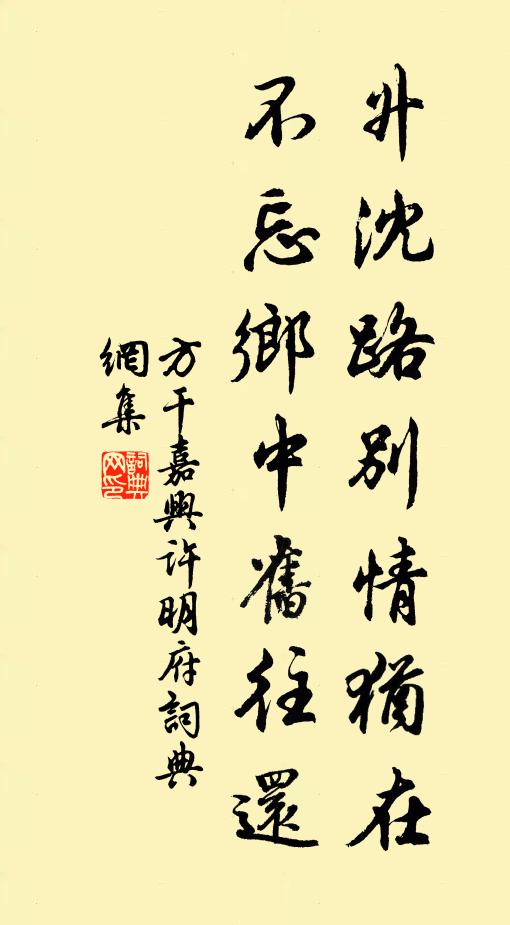 升沈路別情猶在
不忘鄉中舊往還
方干嘉興許明府詞典
網集
詞典網